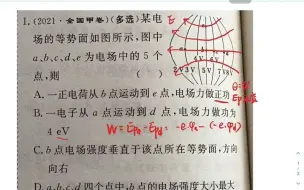 1.(2021·全国甲卷)(多选)某电
场的等势面如图所示,图中
a、b、c、d、e为电场中的5个
点,则 ( )
E
2V 3V 5V 6V
A.一正电荷从b点运动到e点,电场力做正功
B.一电子从a点运动到d点,电场力做功为
4 eV W=Epa-Epd=-e·φa-(-e·φd)
C.b点电场强度垂直于该点所在等势面,方向
向右
D.a、b、c、d四个点中,b点的电场强度大小最大